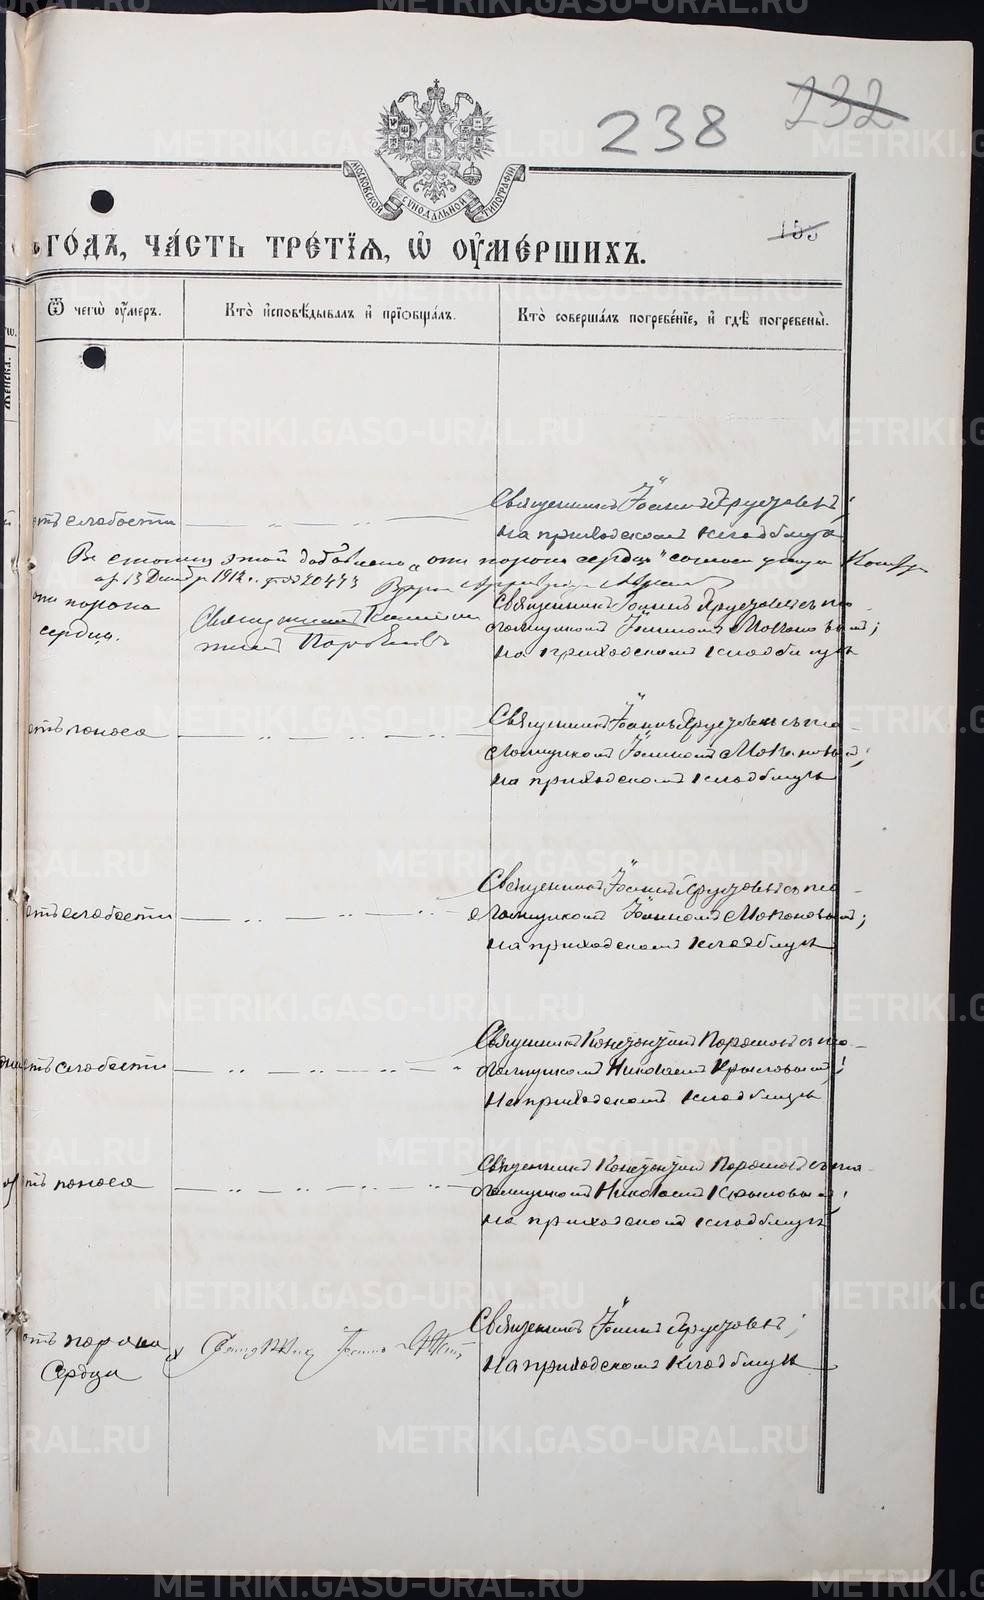 238
232
МОСКОВСКОЙ СѴНОДАЛЬНОЙ ТИПОГРАФІИ
155
ГО́ДЪ, ЧА́СТЬ ТРЕ́ТІѦ, Ѡ ОУМЕ́РШИХЪ.
Женска.
Ѿ чегѡ̀ оу́меръ.
Кто̀ и҆сповѣ́дывалъ и҆ прїѡбща́лъ.
Кто̀ соверша́лъ погребе́нїе, и҆ гдѣ̀ погребены̀.
отъ слабости
Священникъ Іоаннъ Хрустовъ;
на приходскомъ кладбищѣ
Въ столбцѣ этой добавлено „отъ порока сердца" согласно указу
от 13 Декабр 1912 г. за № 20473
отъ порока
сердца.
Священникъ
Священникъ Іоаннъ Хрустовъ съ пса-
ломщикомъ Іоанномъ Мокановымъ;
на приходскомъ кладбищѣ
отъ поноса
Священникъ Іоаннъ Хрустовъ съ пса-
ломщикомъ Іоанномъ Мокановымъ;
на приходскомъ кладбищѣ
отъ слабости
Священникъ Іоаннъ Хрустовъ съ пса-
ломщикомъ Іоанномъ Мокановымъ;
на приходскомъ кладбищѣ
отъ слабости
Священникъ Константинъ съ пса-
ломщикомъ Николаемъ Крыловымъ;
На приходскомъ кладбищѣ
отъ поноса
Священникъ Константинъ съ пса-
ломщикомъ Николаемъ Крыловымъ;
на приходскомъ кладбищѣ
отъ порока
Сердца
Священникъ Іоаннъ
Священникъ Іоаннъ Хрустовъ;
На приходскомъ Кладбищѣ
METRIKI.GASO-URAL.RU